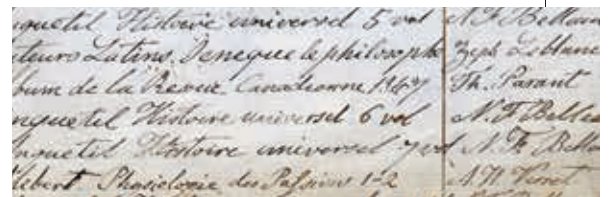 nquetil Histoire universel 5 vol N. F. Belleau
uteurs Latins, Seneque le philosophe Zeph Leblanc
bum de la Revue Canadienne 1847 Th. Parant
nquetil Histoire universel 6 vol N. F Bellea
nquetil Histoire universel 7 vol N. F. Bellea
lebert Phisiologie des Passions 1-2 A. H.